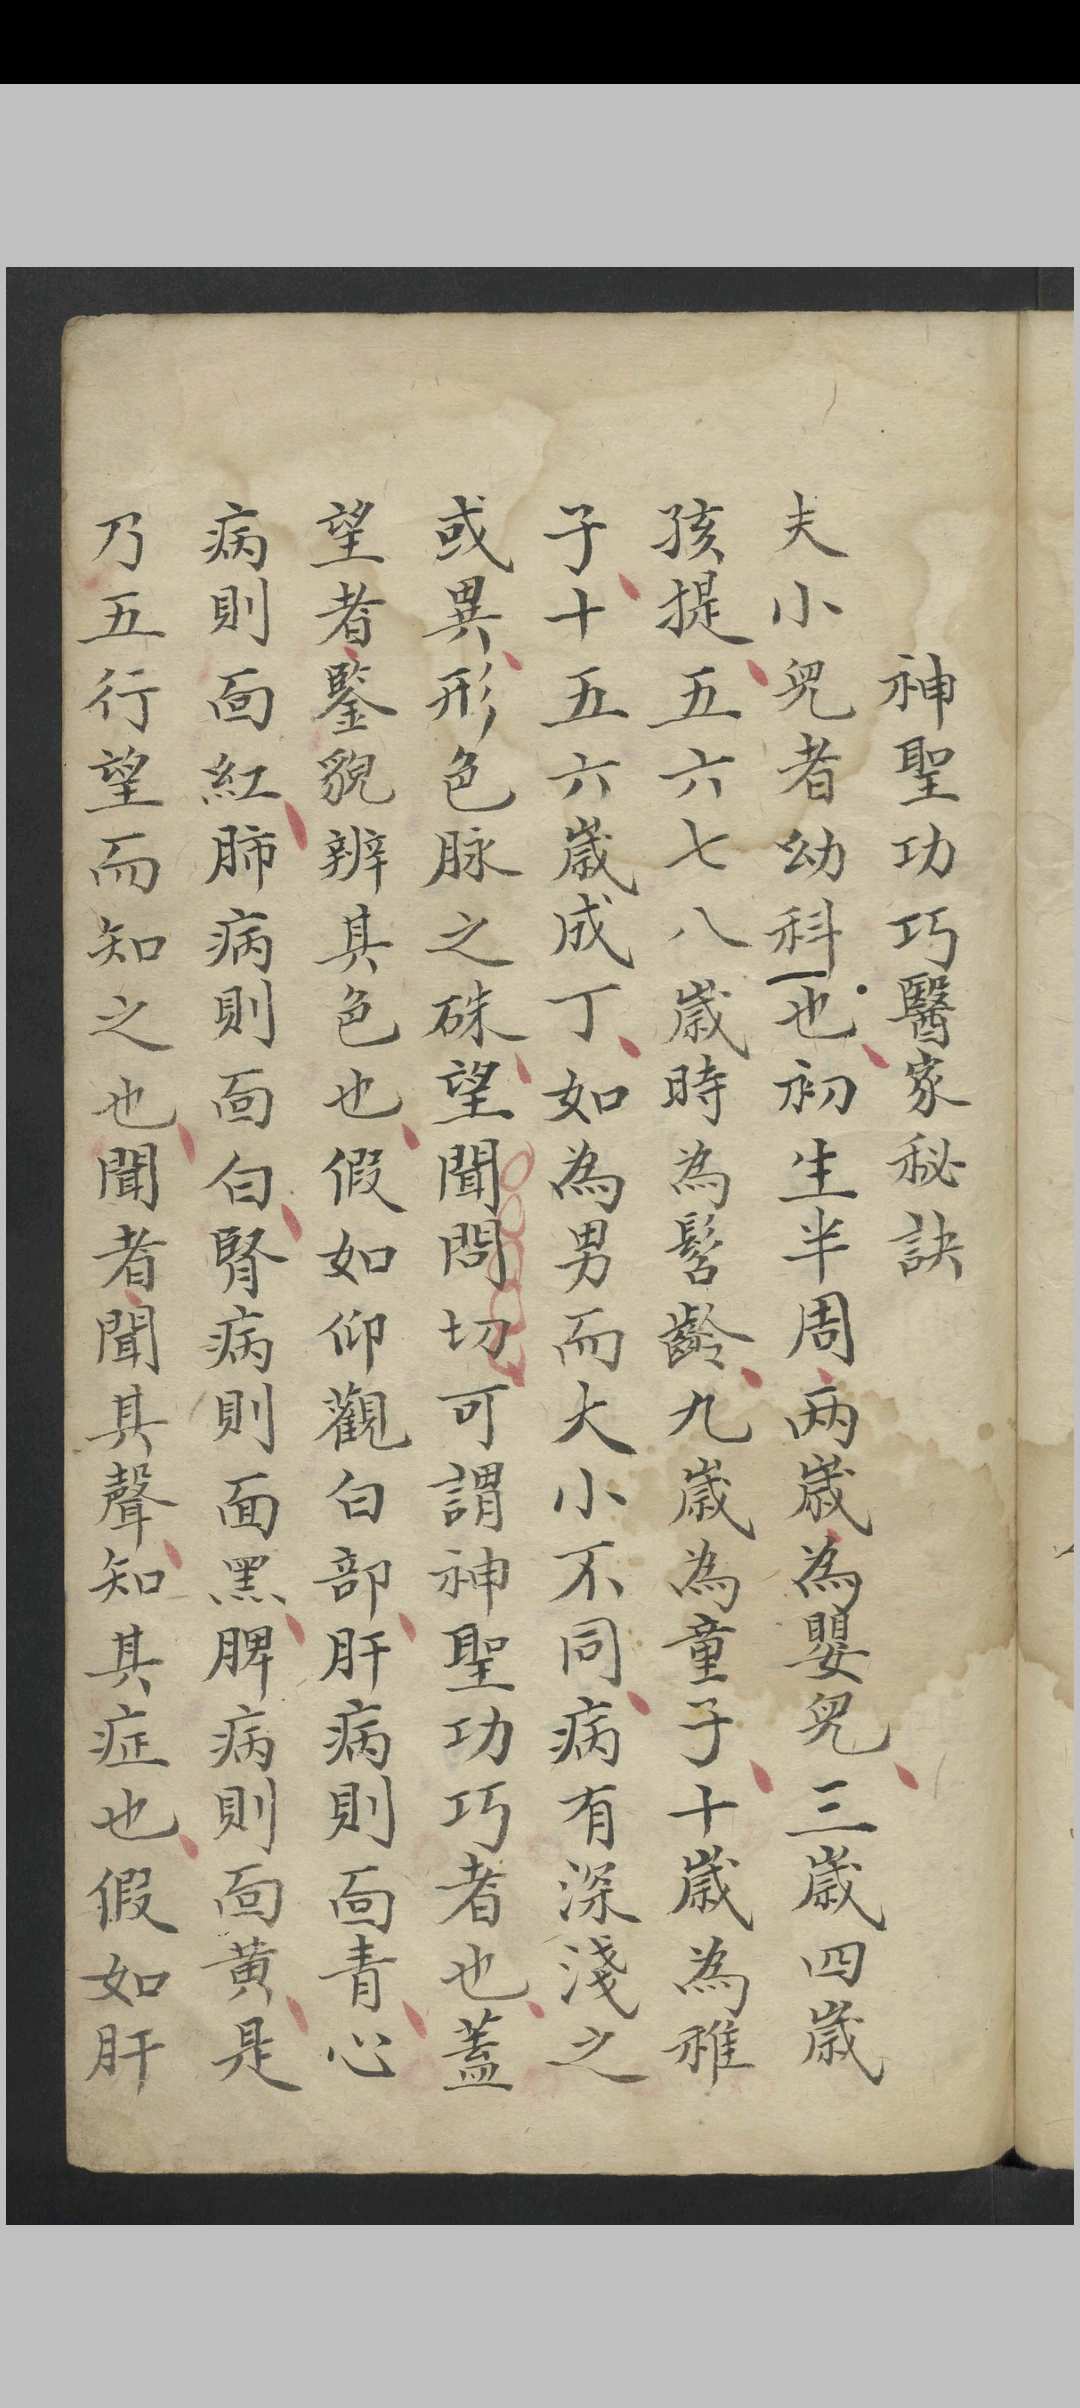 神聖功巧醫家秘訣
夫小兒者幼科也初生半周兩歲為嬰兒三歲四歲
孩提五六七八歲時為髫齡九歲為童子十歲為稚
子十五六歲成丁如為男而大小不同病有深淺之
或異形色脉之硃望聞問切可謂神聖功巧者也蓋
望者鑒貌辨其色也假如仰觀白部肝病則面青心
病則面紅肺病則面白腎病則面黑脾病則面黃是
乃五行望而知之也聞者聞其聲知其症也假如肝